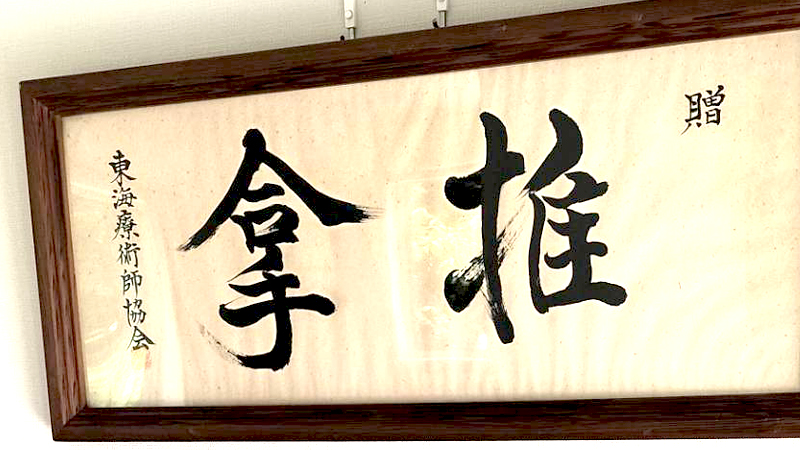 贈
推拿
東海療術師協会